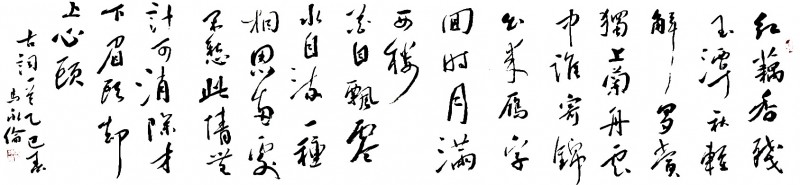 紅藕香殘
玉簟秋輕
解羅裳
獨上蘭舟雲
中誰寄錦
書來雁字
回時月滿
西樓
花自飄零
水自流一種
相思兩處
閒愁此情無
計可消除才
下眉頭却
上心頭
古詞一首乙巳春
馬永倫